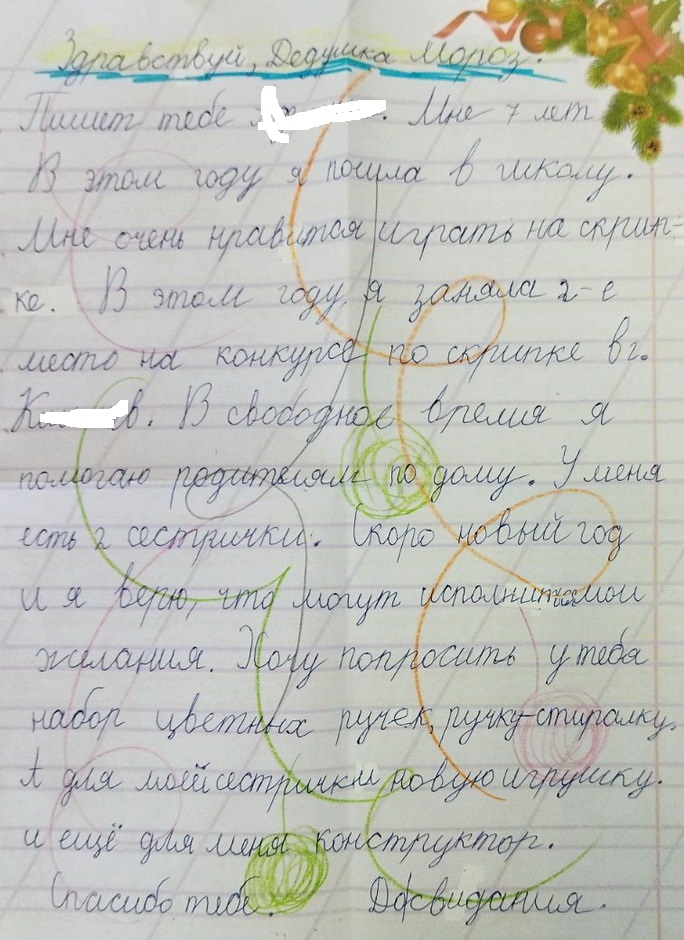 Здравствуй, Дедушка Мороз.
Пишет тебе . Мне 7 лет
В этом году я пошла в школу.
Мне очень нравится играть на скрип-
ке. В этом году я заняла 2-е
место на конкурсе по скрипке в г.
В свободное время я
помогаю родителям по дому. У меня
есть 2 сестрички. Скоро новый год
и я верю, что могут исполнится мои
желания. Хочу попросить у тебя
набор цветных ручек, ручку-стиралку.
А для моей сестрички новую игрушку.
и ещё для меня конструктор.
Спасибо тебе. Досвидания.